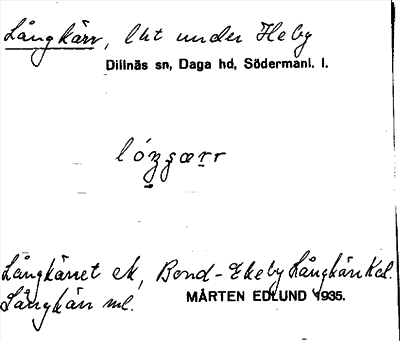 Långkärr, lht under Heby
Dillnäs sn, Daga hd, Södermanl. l.
Långkärret ek, Bond-Ekeby Långkärr Kal.
Långkärr ml.
MÅRTEN EDLUND 1935.